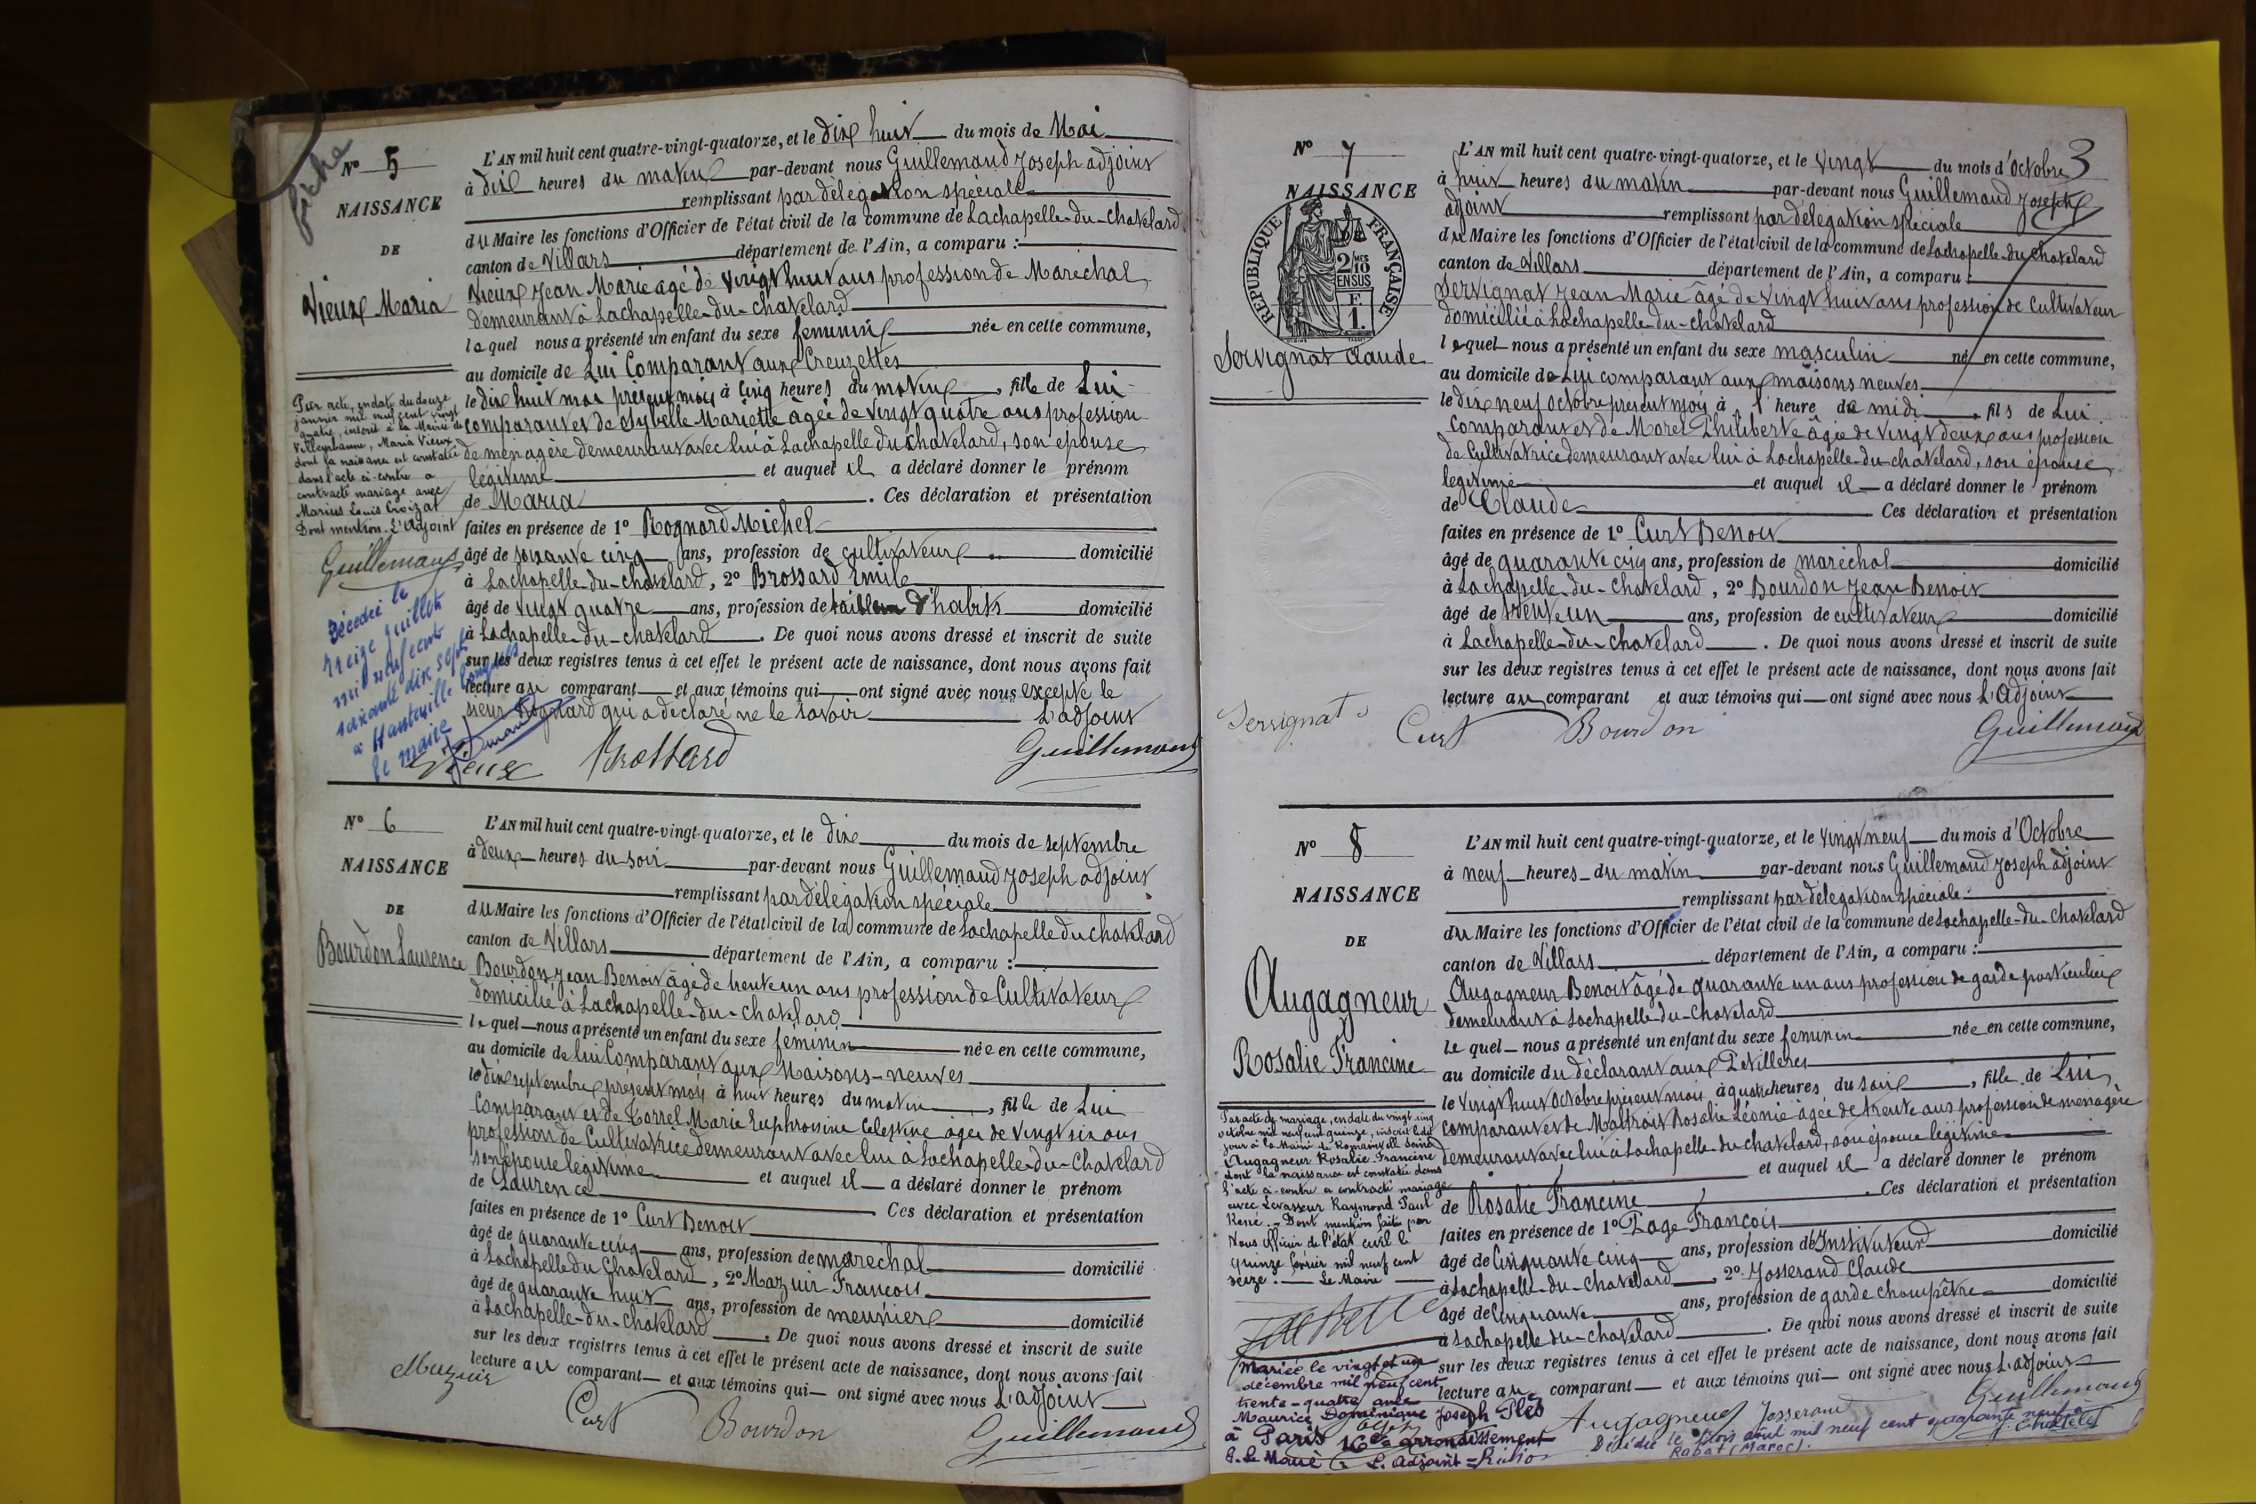 fiche
N° 5
NAISSANCE
DE
Vieux Maria
L'AN mil huit cent quatre-vingt-quatorze, et le dix huit du mois de Mai
à dix heures du matin par-devant nous Guillemaud Joseph adjoint
remplissant par délégation spéciale
du Maire les fonctions d'Officier de l'état civil de la commune de Lachapelle-du-chatelard
canton de Villars département de l'Ain, a comparu :
Vieux Jean Marie agé de vingt huit ans profession de Maréchal
demeurant à Lachapelle-du-chatelard
lequel nous a présenté un enfant du sexe feminin née en cette commune,
au domicile de Lui Comparant aux Creuzettes
le dix huit mai présent mois à cinq heures du matin, fille de Lui
comparant et de Mariette âgée de vingt quatre ans profession
de ménagère demeurant avec lui à Lachapelle du chatelard, son épouse
légitime et auquel il a déclaré donner le prénom
de Maria. Ces déclaration et présentation
faites en présence de 1° Rognard Michel
âgé de soixante cinq ans, profession de cultivateur domicilié
à Lachapelle-du-chatelard, 2° Brossard Emile
âgé de vingt quatre ans, profession de tailleur d'habits domicilié
à Lachapelle-du-chatelard. De quoi nous avons dressé et inscrit de suite
sur les deux registres tenus à cet effet le présent acte de naissance, dont nous avons fait
lecture au comparant et aux témoins qui ont signé avec nous excepté le
sieur Rognard qui a déclaré ne le savoir L'adjoint
Vieux Brossard Guillemaud
Par acte, en date du douze
janvier mil neuf cent vingt
quatre, inscrit à la Mairie de
Villeurbanne, Maria Vieux,
dont la naissance est constatée
dans l'acte ci-contre a
contracté mariage avec
Marius Louis Croizat
Dont mention. L'Adjoint
Guillemaud
Décédée le
treize juillet
mil neuf cent
soixante dix sept
à Hauteville Lompnes
le maire
N° 6
NAISSANCE
DE
Bourdon Laurence
L'AN mil huit cent quatre-vingt-quatorze, et le dix du mois de septembre
à deux heures du soir par-devant nous Guillemaud Joseph adjoint
remplissant par délégation spéciale
du Maire les fonctions d'Officier de l'état civil de la commune de Lachapelle du chatelard
canton de Villars département de l'Ain, a comparu :
Bourdon Jean Benoit âgé de trente un ans profession de Cultivateur
domicilié à Lachapelle-du-chatelard
lequel nous a présenté un enfant du sexe féminin née en cette commune,
au domicile de lui Comparant aux Maisons-neuves
le dix septembre présent mois à huit heures du matin, fille de Lui
Comparant et de Torrel Marie Euphrosine Celestine âgée de vingt six ans
profession de Cultivatrice demeurant avec lui à Lachapelle-du-Chatelard
son épouse légitime et auquel il a déclaré donner le prénom
de Laurence. Ces déclaration et présentation
faites en présence de 1° Curt Benoit
âgé de quarante cinq ans, profession de maréchal domicilié
à Lachapelle du Chatelard, 2° Mazuir François
âgé de quarante huit ans, profession de meunier domicilié
à Lachapelle-du-chatelard. De quoi nous avons dressé et inscrit de suite
sur les deux registres tenus à cet effet le présent acte de naissance, dont nous avons fait
lecture au comparant et aux témoins qui ont signé avec nous L'adjoint
Mazuir Curt Bourdon Guillemaud
3
N° 7
NAISSANCE
RÉPUBLIQUE FRANÇAISE
2/10 MES
EN SUS
F.
1.
Servignat Claude
L'AN mil huit cent quatre-vingt-quatorze, et le vingt du mois d'Octobre
à huit heures du matin par-devant nous Guillemaud Joseph
adjoint remplissant par délégation spéciale
du Maire les fonctions d'Officier de l'état civil de la commune de Lachapelle-du-chatelard
canton de Villars département de l'Ain, a comparu :
Servignat Jean Marie âgé de vingt huit ans profession de Cultivateur
domicilié à Lachapelle-du-chatelard
lequel nous a présenté un enfant du sexe masculin né en cette commune,
au domicile de Lui comparant aux maisons neuves
le dix neuf Octobre présent mois à 1 heure de midi, fils de Lui
Comparant et de Morel Philiberte âgée de vingt deux ans profession
de Cultivatrice demeurant avec lui à Lachapelle-du-chatelard, son épouse
légitime et auquel il a déclaré donner le prénom
de Claude Ces déclaration et présentation
faites en présence de 1° Curt Benoit
âgé de quarante cinq ans, profession de maréchal domicilié
à Lachapelle-du-Chatelard, 2° Bourdon Jean Benoit
âgé de trente un ans, profession de cultivateur domicilié
à Lachapelle-du-Chatelard. De quoi nous avons dressé et inscrit de suite
sur les deux registres tenus à cet effet le présent acte de naissance, dont nous avons fait
lecture au comparant et aux témoins qui ont signé avec nous L'Adjoint
Servignat Curt Bourdon Guillemaud
N° 8
NAISSANCE
DE
Augagneur
Rosalie Francine
L'AN mil huit cent quatre-vingt-quatorze, et le vingt neuf du mois d'Octobre
à neuf heures du matin par-devant nous Guillemaud Joseph adjoint
remplissant par délégation spéciale
du Maire les fonctions d'Officier de l'état civil de la commune de Lachapelle-du-chatelard
canton de Villars département de l'Ain, a comparu :
Augagneur Benoit âgé de quarante un ans profession de garde particulier
demeurant à Lachapelle-du-chatelard
lequel nous a présenté un enfant du sexe feminin née en cette commune,
au domicile du déclarant aux
le vingt huit Octobre présent mois à quatre heures du soir, fille de Lui
comparant et de Maltrait Rosalie Léonie âgée de trente ans profession de ménagère
demeurant avec lui à Lachapelle-du-chatelard, son épouse légitime
et auquel il a déclaré donner le prénom
de Rosalie Francine. Ces déclaration et présentation
faites en présence de 1° Page François
âgé de Cinquante cinq ans, profession d'Instituteur domicilié
à Lachapelle-du-chatelard, 2° Josserand Claude
âgé de Cinquante ans, profession de garde champêtre domicilié
à Lachapelle du-chatelard. De quoi nous avons dressé et inscrit de suite
sur les deux registres tenus à cet effet le présent acte de naissance, dont nous avons fait
lecture au comparant et aux témoins qui ont signé avec nous L'adjoint
Augagneur Josserand Guillemaud
Par acte de mariage, en date du vingt cinq
octobre mil neuf cent quinze, inscrit ledit
jour à la Mairie de Romainville Seine
Augagneur Rosalie Francine
dont la naissance est constatée dans
l'acte ci-contre a contracté mariage
avec Levasseur Raymond Paul
René. Dont mention faite par
Nous officier de l'état civil le
quinze février mil neuf cent
seize. Le Maire
Mariée le vingt et un
décembre mil neuf cent
trente-quatre avec
Maurice Dominique Joseph
à Paris 16e arrondissement
P. Le Maire L'adjoint
Décédée le trois août mil neuf cent quarante neuf à
Rabat (Maroc).